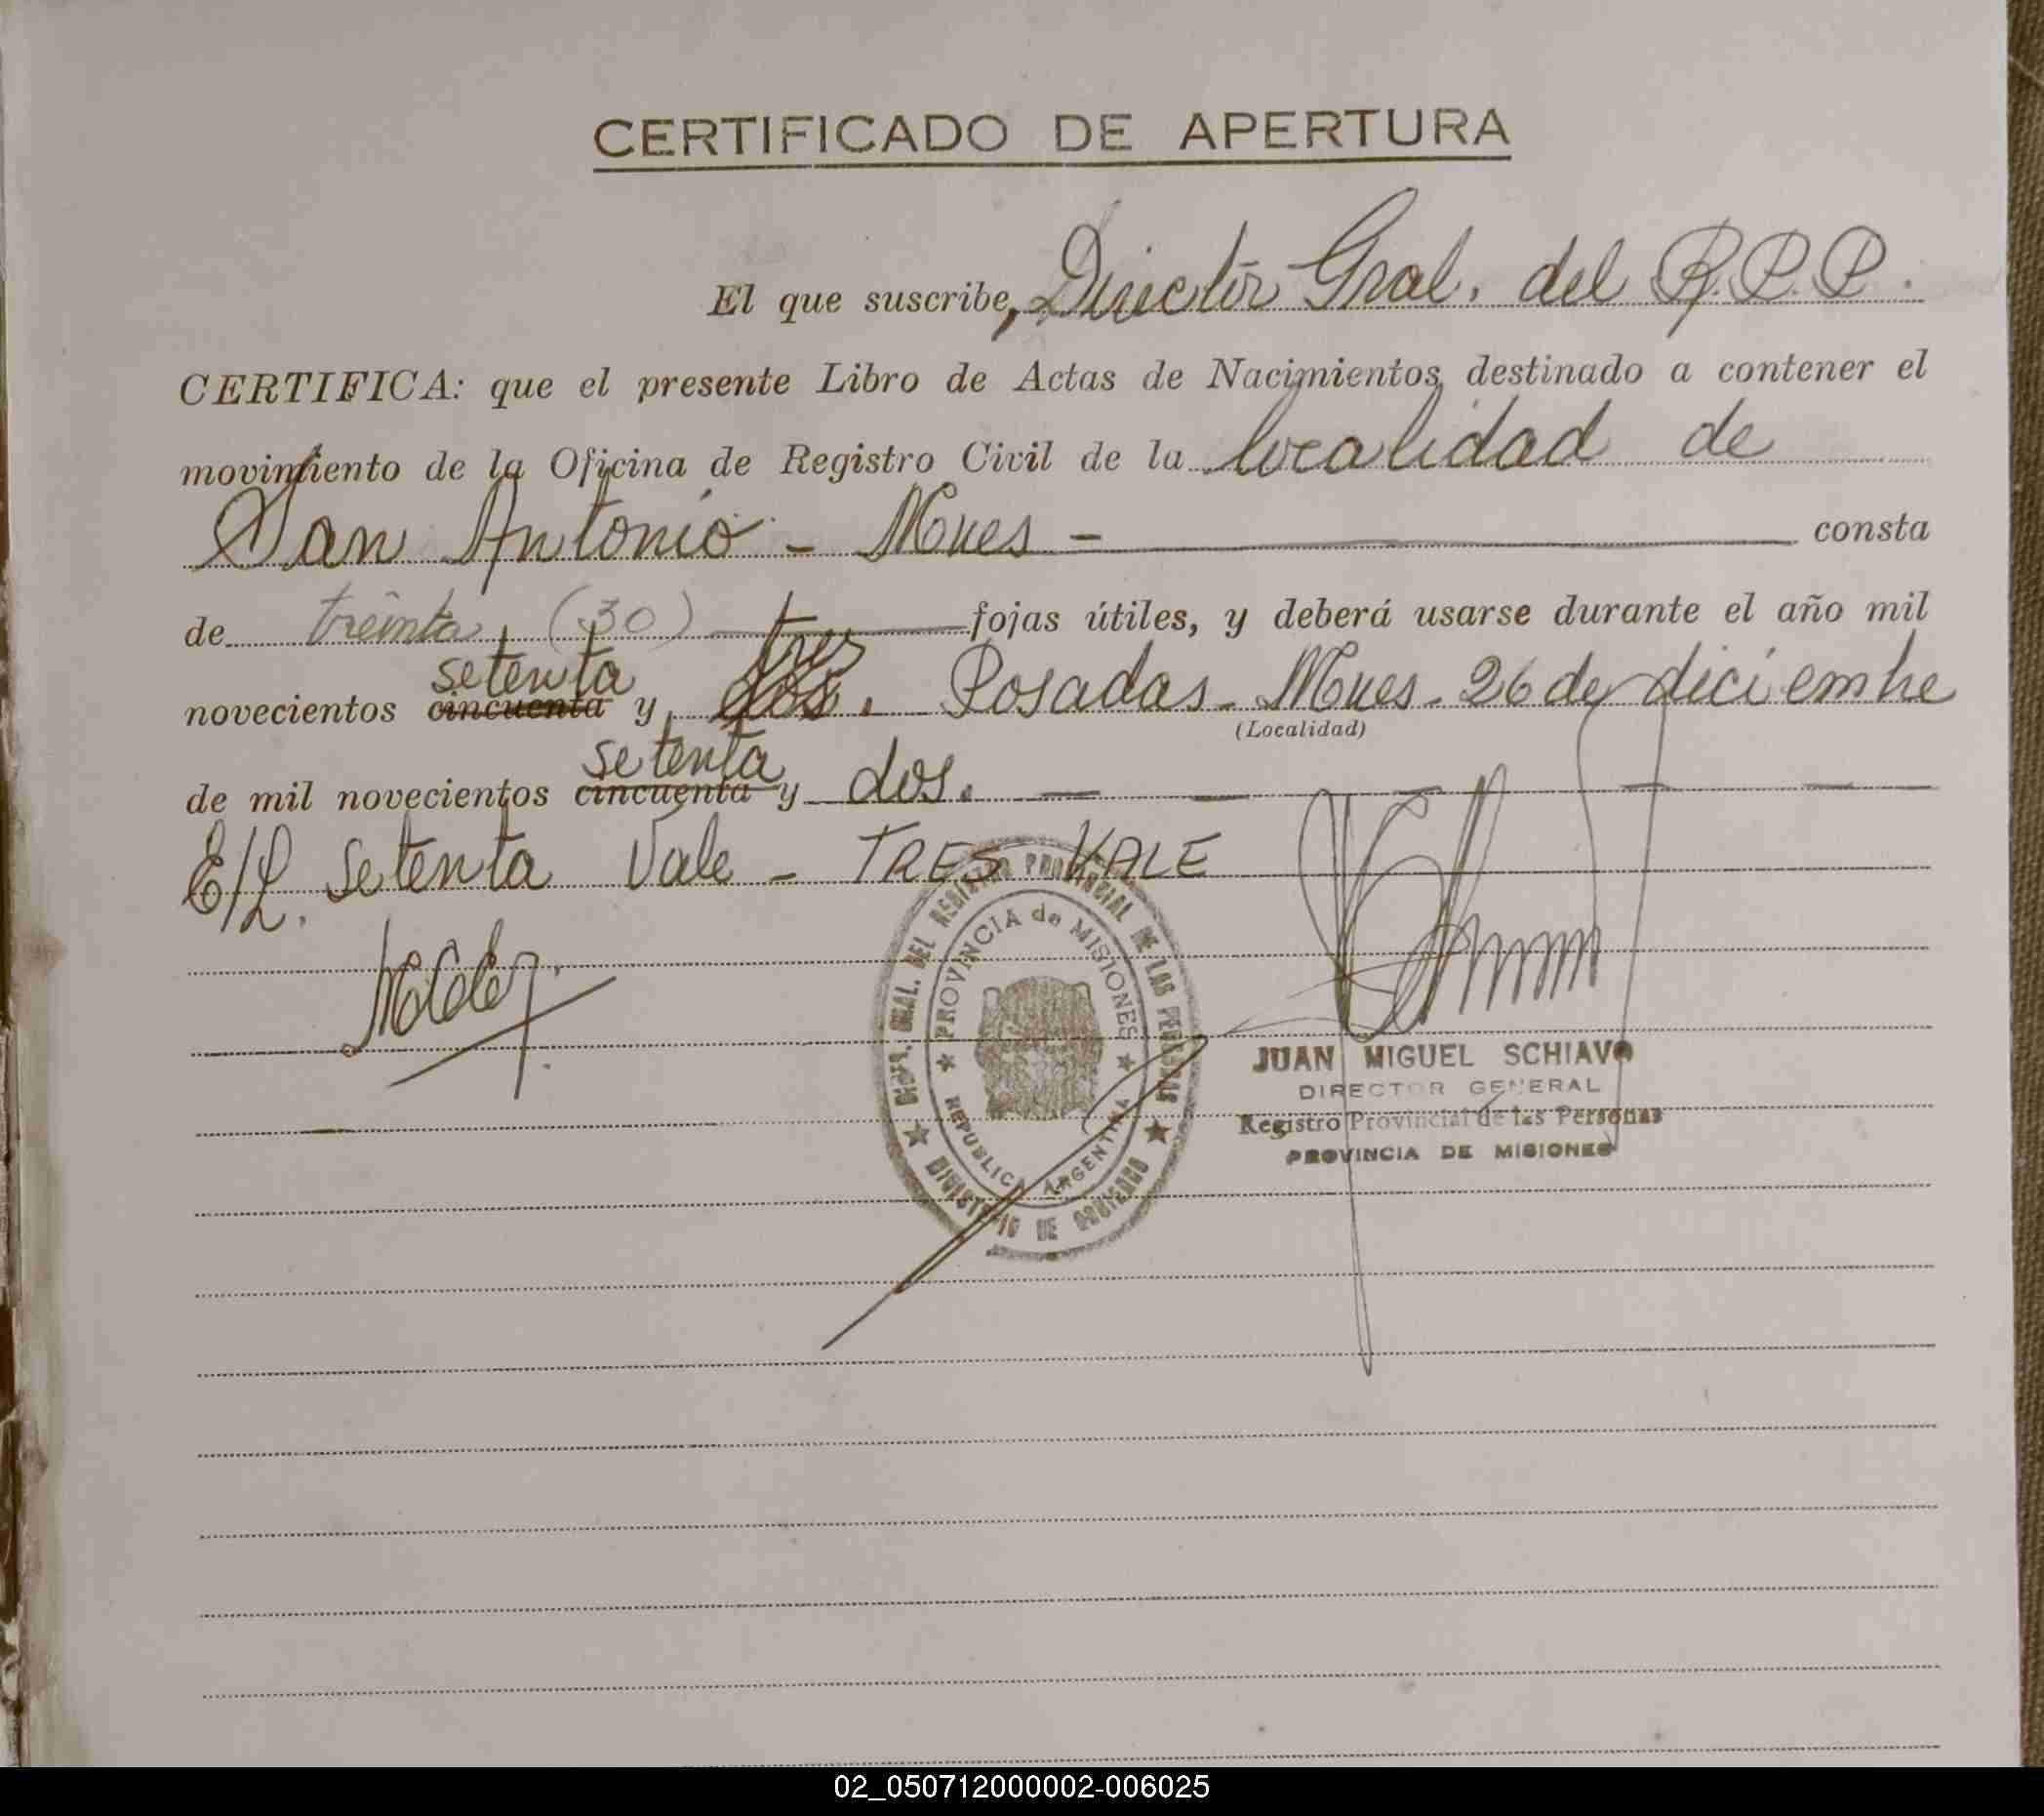 CERTIFICADO DE APERTURA
El que suscribe, Director Gral. del R.P.P.
CERTIFICA: que el presente Libro de Actas de Nacimientos, destinado a contener el
movimiento de la Oficina de Registro Civil de la localidad de
San Antonio - Mnes - consta
de treinta (30) fojas útiles, y deberá usarse durante el año mil
setenta tres
novecientos cincuenta y dos. Posadas - Mnes - 26 de diciembre
(Localidad)
setenta
de mil novecientos cincuenta y dos. — — — — —
E/L. setenta Vale - TRES VALE
DIREC. GRAL. DEL REGISTRO PROVINCIAL DE LAS PERSONAS
PROVINCIA de MISIONES
REPUBLICA ARGENTINA
MINISTERIO DE GOBIERNO
JUAN MIGUEL SCHIAVO
DIRECTOR GENERAL
Registro Provincial de las Personas
PROVINCIA DE MISIONES
02_050712000002-006025